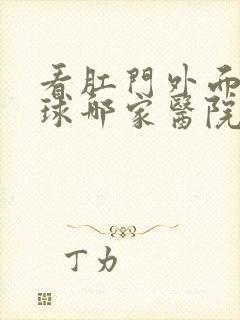 看肛門外而
球哪家醫院
丁力